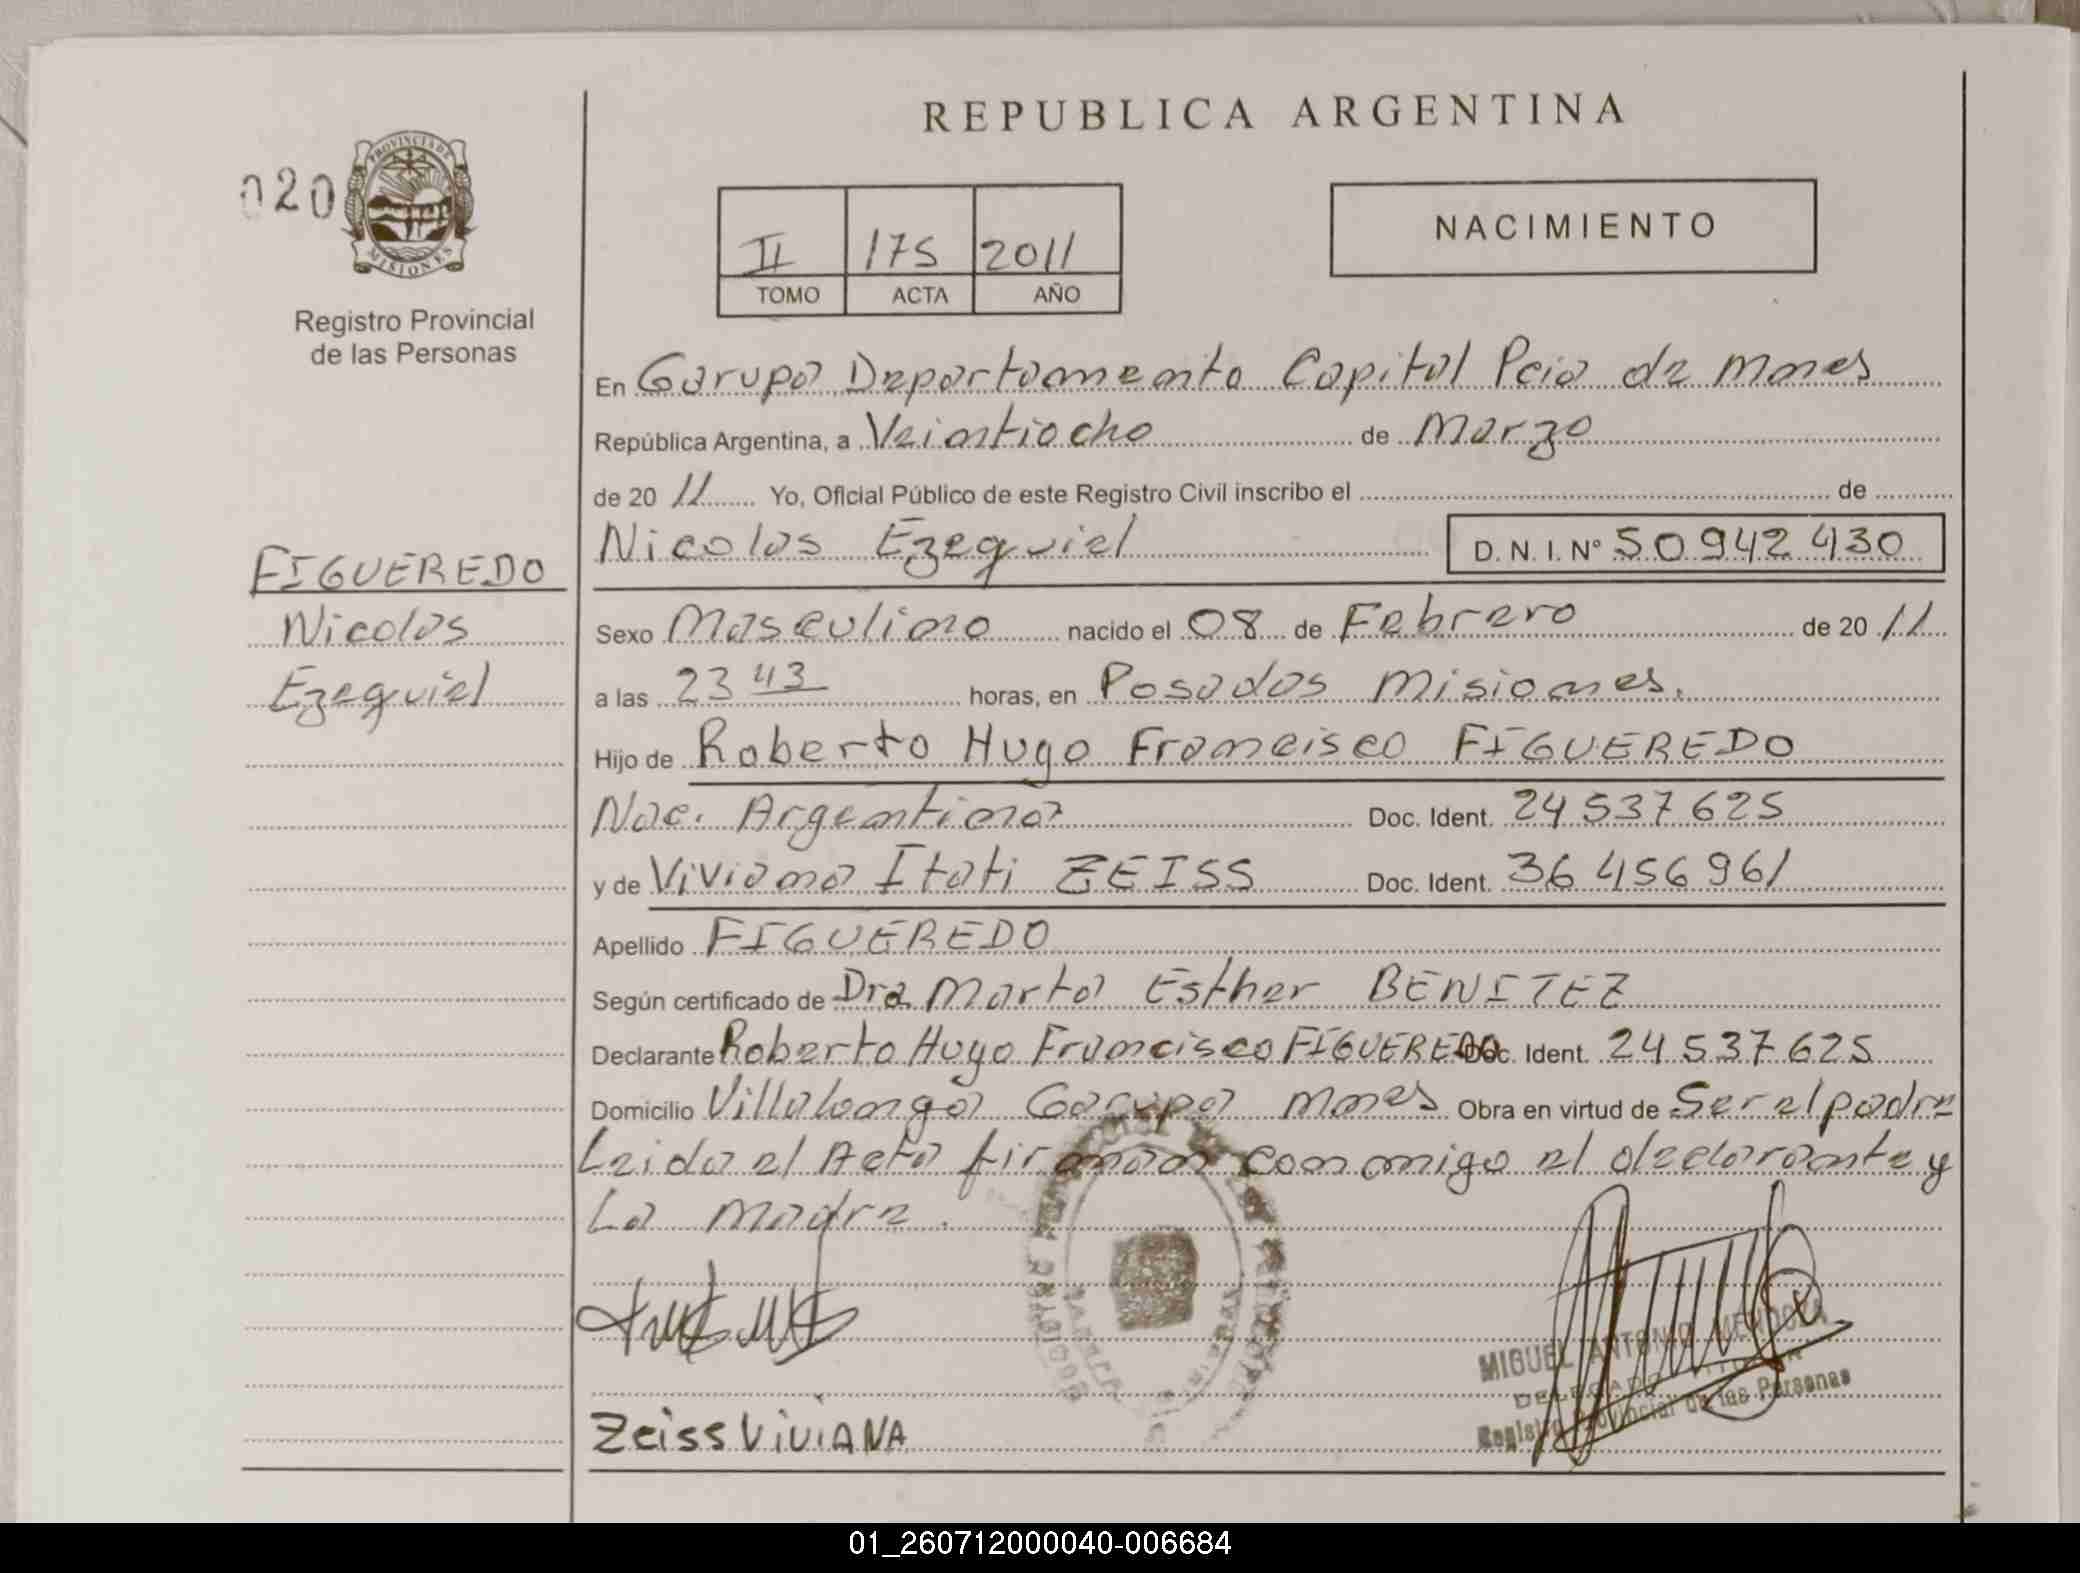 REPUBLICA ARGENTINA
020
PROVINCIA DE
MISIONES
Registro Provincial
de las Personas
II 175 2011
TOMO ACTA AÑO
NACIMIENTO
En Garupa Departamento Capital Pcia de Mnes
República Argentina, a Veintiocho de Marzo
de 20 11 Yo, Oficial Público de este Registro Civil inscribo el de
Nicolas Ezequiel D. N. I. Nº 50942430
FIGUEREDO
Nicolas
Ezequiel
Sexo Masculino nacido el 08 de Febrero de 20 11
a las 23 43 horas, en Posadas Misiones.
Hijo de Roberto Hugo Francisco FIGUEREDO
Nac. Argentina Doc. Ident. 24537625
y de Viviana Itati ZEISS Doc. Ident. 36456961
Apellido FIGUEREDO
Según certificado de Dra Marta Esther BENITEZ
Declarante Roberto Hugo Francisco FIGUEREDO Doc. Ident. 24537625
Domicilio Villalonga Garupa Mnes Obra en virtud de Ser el padre
Leida el Acta firman conmigo el declarante y
La madre.
MIGUEL ANTONIO MENDOZA
DELEGADO TITULAR
Registro Provincial de las Personas
Zeiss ViViANA
01_260712000040-006684